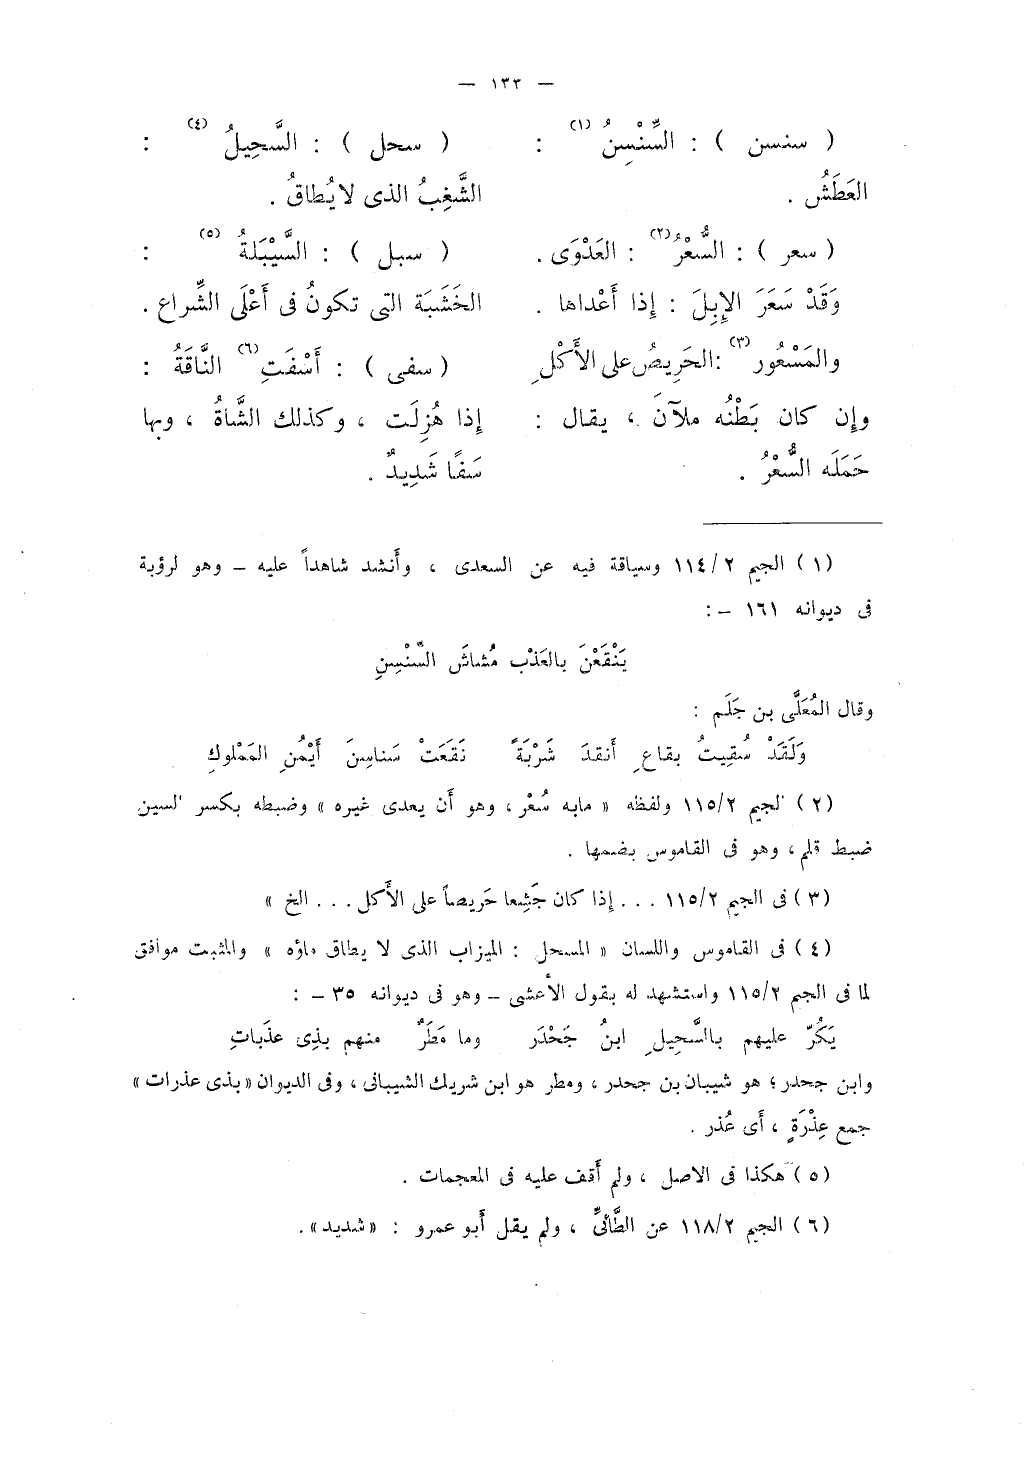 — ١٣٣ —
( سنسن ) : السِّنْسِنُ (١) :
العَطَشُ .
( سعر ) : السُّعْرُ (٢) : العَدْوَى .
وَقَدْ سَعَرَ الإِبِلَ : إِذا أَعْداها .
والمَسْعُور (٣) : الحَرِيصُ على الأَكْلِ
وإِن كان بَطْنُه ملآنَ ، يقال :
حَمَلَه السُّعْرُ .
( سحل ) : السَّحِيلُ (٤) :
الشَّغِبُ الذى لا يُطاقُ .
( سبل ) : السَّيْبَلَةُ (٥) :
الخَشَبَة التى تكونُ فى أَعْلَى الشِّراع .
( سفى ) : أَسْفَتِ (٦) النَّاقَةُ :
إِذا هُزِلَت ، وكذلك الشَّاةُ ، وبها
سَفًا شَدِيدٌ .
(١) الجيم ١١٤/٢ وسياقة فيه عن السعدى ، وأَنشد شاهداً عليه – وهو لرؤبة
فى ديوانه ١٦١ – :
يَنْقَعْنَ بالعَذْبِ مُشاشَ السِّنْسِنِ
وقال المُعَلَّى بن جَلَم :
وَلَقَدْ سُقِيتُ بقاعِ أَنقدَ شَرْبَةً نَقَعَتْ سَناسِنَ أَيْمُنِ المَمْلوكِ
(٢) الجيم ١١٥/٢ ولفظه « مابه سُعْر ، وهو أَن يعدى غيره » وضبطه بكسر السين
ضبط قلم ، وهو فى القاموس بضمها .
(٣) فى الجيم ١١٥/٢ . . . إِذا كان جَشِعا حَريصاً على الأَكل . . . الخ »
(٤) فى القاموس واللسان « المسحل : الميزاب الذى لا يطاق ماؤه » والمثبت موافق
لما فى الجيم ١١٥/٢ واستشهد له بقول الأَعشى – وهو فى ديوانه ٣٥ – :
يَكُرّ عليهم بالسَّحِيلِ ابنُ جَحْدَر وما مَطَرٌ منهم بذِى عذَباتِ
وابن جحدر ؛ هو شيبان بن جحدر ، ومطر هو ابن شريك الشيبانى ، وفى الديوان « بذى عذرات »
جمع عِذْرَةٍ ، أَى عُذر .
(٥) هكذا فى الاصل ، ولم أَقف عليه فى المعجمات .
(٦) الجيم ١١٨/٢ عن الطَّائىِّ ، ولم يقل أَبو عمرو : «شديد» .